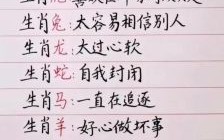 生肖兔:太容易相信别人
生肖龙:太过心软
生肖蛇:自我封闭
生肖马:一直在追逐
生肖羊:好心做坏事